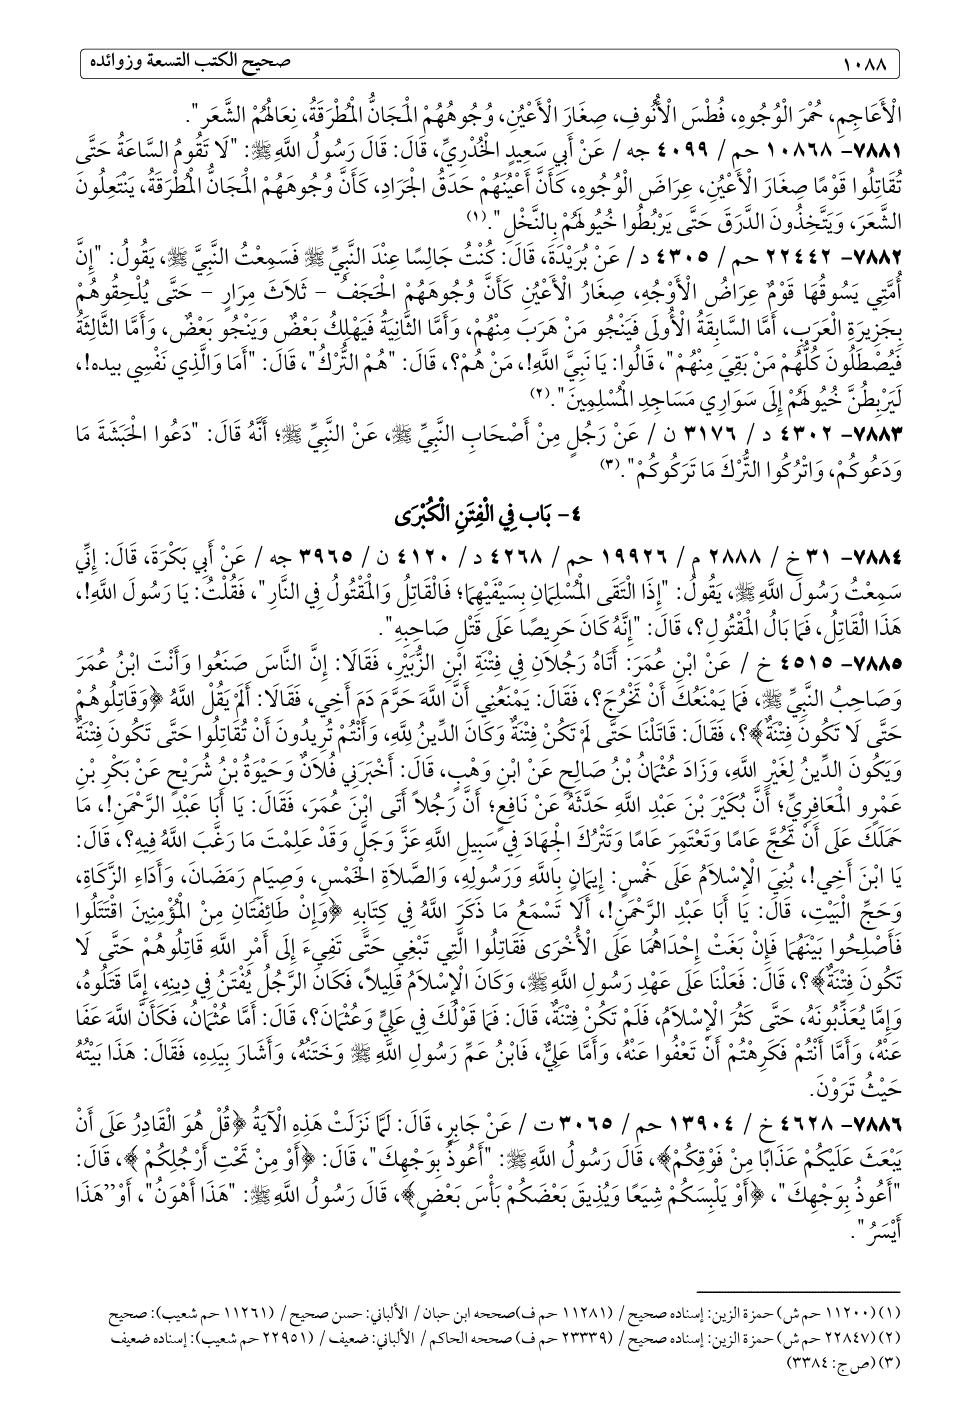 ١٠٨٨ صحيح الكتب التسعة وزوائده
الْأَعَاجِمِ، حُمْرَ الْوُجُوهِ، فُطْسَ الْأُنُوفِ، صِغَارَ الْأَعْيُنِ، وُجُوهُهُمْ الْمَجَانُّ الْمُطْرَقَةُ، نِعَالُهُمْ الشَّعَر".
٧٨٨١- ١٠٨٦٨ حم / ٤٠٩٩ جه / عَنْ أَبِي سَعِيدٍ الْخُدْرِيِّ، قَالَ: قَالَ رَسُولُ اللَّهِ ﷺ: "لَا تَقُومُ السَّاعَةُ حَتَّى
تُقَاتِلُوا قَوْمًا صِغَارَ الْأَعْيُنِ، عِرَاضَ الْوُجُوهِ، كَأَنَّ أَعْيُنَهُمْ حَدَقُ الْجَرَادِ، كَأَنَّ وُجُوهَهُمْ الْمَجَانُّ الْمُطْرَقَةُ، يَنْتَعِلُونَ
الشَّعَرَ، وَيَتَّخِذُونَ الدَّرَقَ حَتَّى يَرْبُطُوا خُيُولَهُمْ بِالنَّخْلِ".(١)
٧٨٨٢- ٢٢٤٤٢ حم / ٤٣٠٥ د/ عَنْ بُرَيْدَةَ، قَالَ: كُنْتُ جَالِسًا عِنْدَ النَّبِيِّ ﷺ فَسَمِعْتُ النَّبِيَّ ﷺ، يَقُولُ: "إِنَّ
أُمَّتِي يَسُوقُهَا قَوْمٌ عِرَاضُ الْأَوْجُهِ، صِغَارُ الْأَعْيُنِ كَأَنَّ وُجُوهَهُمْ الْحَجَفُ – ثَلَاثَ مِرَارٍ – حَتَّى يُلْحِقُوهُمْ
بِجَزِيرَةِ الْعَرَبِ، أَمَّا السَّابِقَةُ الْأُولَى فَيَنْجُو مَنْ هَرَبَ مِنْهُمْ، وَأَمَّا الثَّانِيَةُ فَيَهْلِكُ بَعْضٌ وَيَنْجُو بَعْضٌ، وَأَمَّا الثَّالِثَةُ
فَيُصْطَلُونَ كُلُّهُمْ مَنْ بَقِيَ مِنْهُمْ"، قَالُوا: يَا نَبِيَّ اللَّهِ!، مَنْ هُمْ؟، قَالَ: "هُمْ التُّرْكُ"، قَالَ: "أَمَا وَالَّذِي نَفْسِي بِيده!،
لَيَرْبِطُنَّ خُيُولَهُمْ إِلَى سَوَارِي مَسَاجِدِ الْمُسْلِمِينَ".(٢)
٧٨٨٣- ٤٣٠٢ د/ ٣١٧٦ ن / عَنْ رَجُلٍ مِنْ أَصْحَابِ النَّبِيِّ ﷺ، عَنْ النَّبِيِّ ﷺ؛ أَنَّهُ قَالَ: "دَعُوا الْحَبَشَةَ مَا
وَدَعُوكُمْ، وَاتْرُكُوا التُّرْكَ مَا تَرَكُوكُمْ".(٣)
٤- بَاب فِي الْفِتَنِ الْكُبْرَى
٧٨٨٤- ٣١ خ / ٢٨٨٨ م / ١٩٩٢٦ حم / ٤٢٦٨ د/ ٤١٢٠ ن / ٣٩٦٥ جه / عَنْ أَبِي بَكْرَةَ، قَالَ: إِنِّي
سَمِعْتُ رَسُولَ اللَّهِ ﷺ، يَقُولُ: "إِذَا الْتَقَى الْمُسْلِمَانِ بِسَيْفَيْهِمَا؛ فَالْقَاتِلُ وَالْمَقْتُولُ فِي النَّارِ"، فَقُلْتُ: يَا رَسُولَ اللَّهِ!،
هَذَا الْقَاتِلُ، فَمَا بَالُ الْمَقْتُولِ؟، قَالَ: "إِنَّهُ كَانَ حَرِيصًا عَلَى قَتْلِ صَاحِبِهِ".
٧٨٨٥- ٤٥١٥ خ / عَنْ ابْنِ عُمَرَ: أَتَاهُ رَجُلَانِ فِي فِتْنَةِ ابْنِ الزُّبَيْرِ، فَقَالَا: إِنَّ النَّاسَ صَنَعُوا وَأَنْتَ ابْنُ عُمَرَ
وَصَاحِبُ النَّبِيِّ ﷺ، فَمَا يَمْنَعُكَ أَنْ تَخْرُجَ؟، فَقَالَ: يَمْنَعُنِي أَنَّ اللَّهَ حَرَّمَ دَمَ أَخِي، فَقَالَا: أَلَمْ يَقُلْ اللَّهُ ﴿وَقَاتِلُوهُمْ
حَتَّى لَا تَكُونَ فِتْنَةٌ﴾؟، فَقَالَ: قَاتَلْنَا حَتَّى لَمْ تَكُنْ فِتْنَةٌ وَكَانَ الدِّينُ لِلَّهِ، وَأَنْتُمْ تُرِيدُونَ أَنْ تُقَاتِلُوا حَتَّى تَكُونَ فِتْنَةٌ
وَيَكُونَ الدِّينُ لِغَيْرِ اللَّهِ، وَزَادَ عُثْمَانُ بْنُ صَالِحٍ عَنْ ابْنِ وَهْبٍ، قَالَ: أَخْبَرَنِي فُلَانٌ وَحَيْوَةُ بْنُ شُرَيْحٍ عَنْ بَكْرِ بْنِ
عَمْرٍو الْمَعَافِرِيِّ؛ أَنَّ بُكَيْرَ بْنَ عَبْدِ اللَّهِ حَدَّثَهُ عَنْ نَافِعٍ؛ أَنَّ رَجُلاً أَتَى ابْنَ عُمَرَ، فَقَالَ: يَا أَبَا عَبْدِ الرَّحْمَنِ!، مَا
حَمَلَكَ عَلَى أَنْ تَحُجَّ عَامًا وَتَعْتَمِرَ عَامًا وَتَتْرُكَ الْجِهَادَ فِي سَبِيلِ اللَّهِ عَزَّ وَجَلَّ وَقَدْ عَلِمْتَ مَا رَغَّبَ اللَّهُ فِيهِ؟، قَالَ:
يَا ابْنَ أَخِي!، بُنِيَ الْإِسْلَامُ عَلَى خَمْسٍ: إِيمَانٍ بِاللَّهِ وَرَسُولِهِ، وَالصَّلَاةِ الْخَمْسِ، وَصِيَامِ رَمَضَانَ، وَأَدَاءِ الزَّكَاةِ،
وَحَجِّ الْبَيْتِ، قَالَ: يَا أَبَا عَبْدِ الرَّحْمَنِ!، أَلَا تَسْمَعُ مَا ذَكَرَ اللَّهُ فِي كِتَابِهِ ﴿وَإِنْ طَائِفَتَانِ مِنْ الْمُؤْمِنِينَ اقْتَتَلُوا
فَأَصْلِحُوا بَيْنَهُمَا فَإِنْ بَغَتْ إِحْدَاهُمَا عَلَى الْأُخْرَى فَقَاتِلُوا الَّتِي تَبْغِي حَتَّى تَفِيءَ إِلَى أَمْرِ اللَّهِ قَاتِلُوهُمْ حَتَّى لَا
تَكُونَ فِتْنَةٌ﴾؟، قَالَ: فَعَلْنَا عَلَى عَهْدِ رَسُولِ اللَّهِ ﷺ، وَكَانَ الْإِسْلَامُ قَلِيلاً، فَكَانَ الرَّجُلُ يُفْتَنُ فِي دِينِهِ، إِمَّا قَتَلُوهُ،
وَإِمَّا يُعَذِّبُونَهُ، حَتَّى كَثُرَ الْإِسْلَامُ، فَلَمْ تَكُنْ فِتْنَةٌ، قَالَ: فَمَا قَوْلُكَ فِي عَلِيٍّ وَعُثْمَانَ؟، قَالَ: أَمَّا عُثْمَانُ، فَكَأَنَّ اللَّهَ عَفَا
عَنْهُ، وَأَمَّا أَنْتُمْ فَكَرِهْتُمْ أَنْ تَعْفُوا عَنْهُ، وَأَمَّا عَلِيٌّ، فَابْنُ عَمِّ رَسُولِ اللَّهِ ﷺ وَخَتَنُهُ، وَأَشَارَ بِيَدِهِ، فَقَالَ: هَذَا بَيْتُهُ
حَيْثُ تَرَوْنَ.
٧٨٨٦- ٤٦٢٨ خ / ١٣٩٠٤ حم / ٣٠٦٥ ت / عَنْ جَابِرٍ، قَالَ: لَمَّا نَزَلَتْ هَذِهِ الْآيَةُ ﴿قُلْ هُوَ الْقَادِرُ عَلَى أَنْ
يَبْعَثَ عَلَيْكُمْ عَذَابًا مِنْ فَوْقِكُمْ﴾، قَالَ رَسُولُ اللَّهِ ﷺ: "أَعُوذُ بِوَجْهِكَ"، قَالَ: ﴿أَوْ مِنْ تَحْتِ أَرْجُلِكُمْ﴾، قَالَ:
"أَعُوذُ بِوَجْهِكَ"، ﴿أَوْ يَلْبِسَكُمْ شِيَعًا وَيُذِيقَ بَعْضَكُمْ بَأْسَ بَعْضٍ﴾، قَالَ رَسُولُ اللَّهِ ﷺ: "هَذَا أَهْوَنُ"، أَوْ"هَذَا
أَيْسَرُ".
(١) (١١٢٠٠ حم ش) حمزة الزين: إسناده صحيح / (١١٢٨١ حم ف)صححه ابن حبان / الألباني: حسن صحيح / (١١٢٦١ حم شعيب): صحيح
(٢) (٢٢٨٤٧ حم ش) حمزة الزين: إسناده صحيح / (٢٣٣٣٩ حم ف) صححه الحاكم / الألباني: ضعيف / (٢٢٩٥١ حم شعيب): إسناده ضعيف
(٣) (ص ج: ٣٣٨٤)